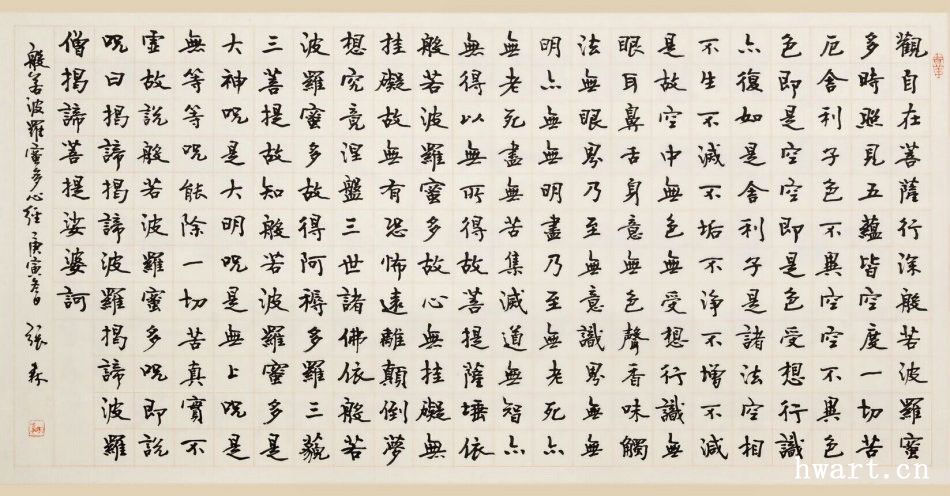 觀自在菩薩行深般若波羅蜜
多時照見五蘊皆空度一切苦
厄舍利子色不異空空不異色
色即是空空即是色受想行識
亦復如是舍利子是諸法空相
不生不滅不垢不淨不增不減
是故空中無色無受想行識無
眼耳鼻舌身意無色聲香味觸
法無眼界乃至無意識界無無
明亦無無明盡乃至無老死亦
無老死盡無苦集滅道無智亦
無得以無所得故菩提薩埵依
般若波羅蜜多故心無挂礙無
挂礙故無有恐怖遠離顛倒夢
想究竟涅盤三世諸佛依般若
波羅蜜多故得阿耨多羅三藐
三菩提故知般若波羅蜜多是
大神呪是大明呪是無上呪是
無等等呪能除一切苦真實不
虛故說般若波羅蜜多呪即說
呪曰揭諦揭諦波羅揭諦波羅
僧揭諦菩提娑婆訶
般若波羅蜜多心經 庚寅冬日 張森
hwart.cn